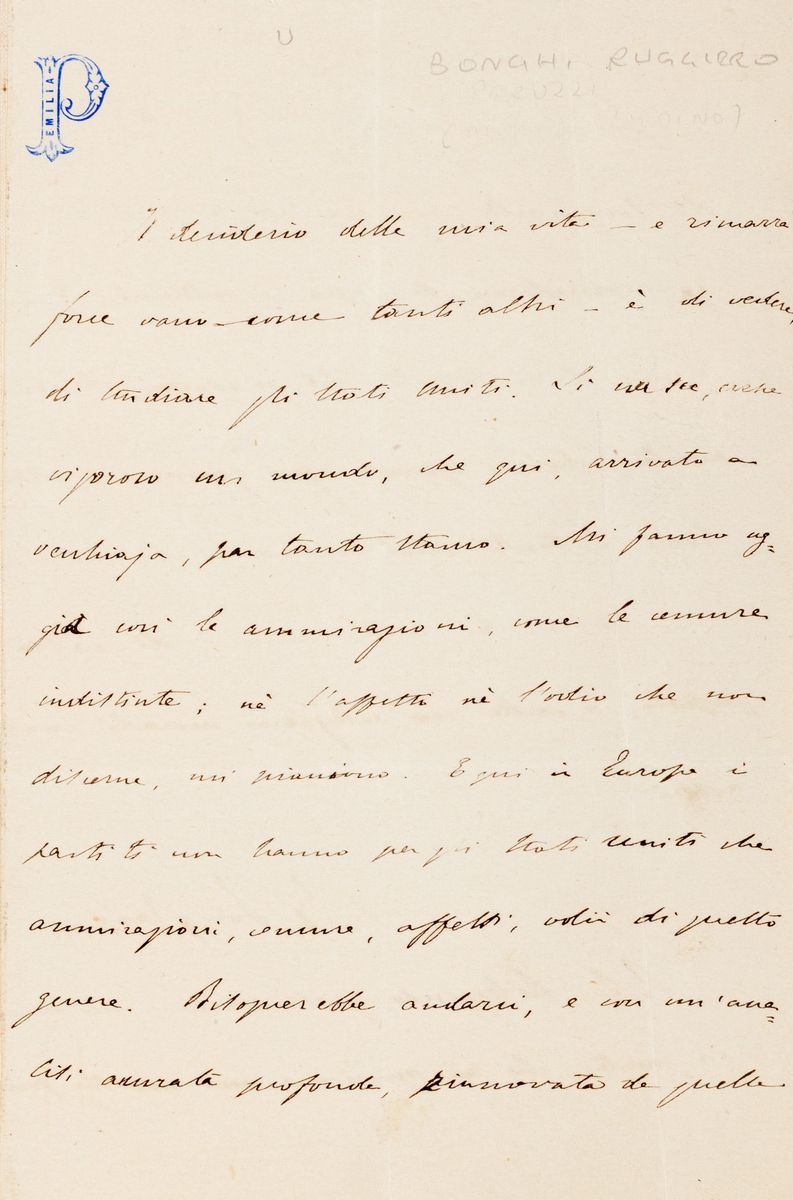 U
BONGHI RUGGIERO
P
EMILIA
Il desiderio della mia vita – e rimarrà
forse vano – come tanti altri – è di vedere,
di studiare gli Stati Uniti. Lì cresce
vigoroso un mondo, che qui, arrivato a
vecchiaja, par tanto stanco. Mi fanno ug=
gia così le ammirazioni, come le censure
indistinte; nè l'affetto nè l'odio che non
discerne, mi piacciono. E qui in Europa i
partiti non hanno per gli Stati Uniti che
ammirazioni, censure, affetti, odii di questo
genere. Bisognerebbe andarvi, e con un'ana=
lisi accurata profonda, rinnovata da quelle